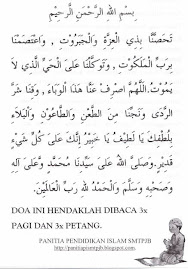 بِسْمِ اللهِ الرَّحْمَنِ الرَّحِيْمِ
تَحَصَّنَّا بِذِي الْعِزَّةِ وَالْجَبَرُوْتِ , وَاعْتَصَمْنَا
بِرَبِّ الْمَلَكُوْتِ , وَتَوَكَّلْنَا عَلَى الْحَيِّ الَّذِي لاَ
يَمُوْتُ. اللَّهُمَّ اصْرِفْ عَنَّا هَذَا الْوَبَاءَ , وَقِنَا شَرَّ
الرَّدَى , وَنَجِّنَا مِنَ الطَّعْنِ وَالطَّاعُوْنِ وَالْبَلاَءِ
بِلُطْفِكَ يَا لَطِيْفُ يَا خَبِيْرُ إِنَّكَ عَلَى كُلِّ شَيْءٍ
قَدِيْرٌ. وَصَلَّى اللهُ عَلَى سَيِّدِنَا مُحَمَّدٍ وَعَلَى آلِهِ
وَصَحْبِهِ وَسَلَّمَ وَالْحَمْدُ للهِ رَبِّ الْعَالَمِيْنَ.
DOA INI HENDAKLAH DIBACA 3x
PAGI DAN 3x PETANG.
PANITIA PENDIDIKAN ISLAM SMTPJB
http://panitiapismtpjb.blogspot.com